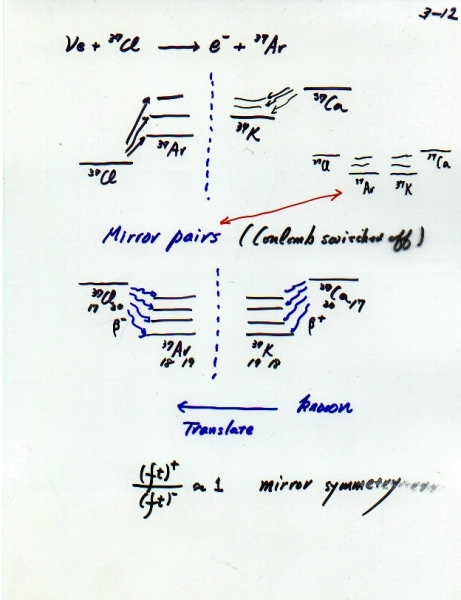 3-12
νe + ³⁷Cl ⟶ e⁻ + ³⁷Ar
³⁷Cl ³⁷Ar ³⁷K ³⁷Ca
³⁷Cl ³⁷Ar ³⁷K ³⁷Ca
Mirror pairs (Coulomb switched off)
³⁷Cl ³⁷Ca
17 20 20 17
β⁻ β⁺
³⁷Ar ³⁷K
18 19 19 18
known
Translate
(ft)⁺
(ft)⁻ ≈ 1 mirror symmetry